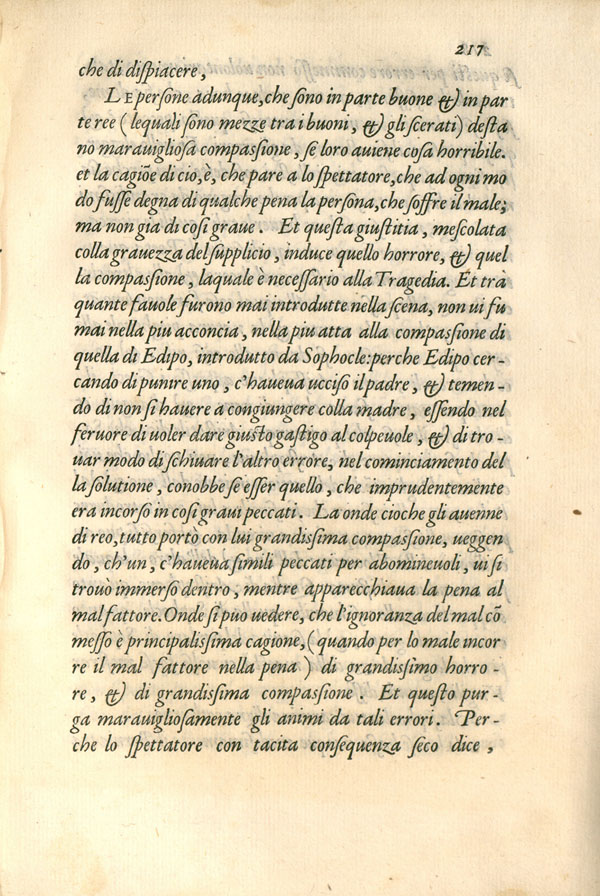 217
che di dispiacere,
LE persone adunque, che sono in parte buone & in par
te ree (lequali sono mezze tra i buoni, & gli scerati) desta
no marauigliosa compassione, se loro auiene cosa horribile.
et la cagiõe di cio, è, che pare a lo spettatore, che ad ogni mo
do fusse degna di qualche pena la persona, che soffre il male;
ma non gia di cosi graue. Et questa giustitia, mescolata
colla grauezza del supplicio, induce quello horrore, & quel
la compassione, laquale è necessario alla Tragedia. Et trà
quante fauole furono mai introdutte nella scena, non ui fu
mai nella piu acconcia, nella piu atta alla compassione di
quella di Edipo, introdutto da Sophocle: perche Edipo cer-
cando di punire uno, c'haueua ucciso il padre, & temen-
do di non si hauere a congiungere colla madre, essendo nel
feruore di uoler dare giusto gastigo al colpeuole, & di tro-
uar modo di schiuare l'altro errore, nel cominciamento del
la solutione, conobbe se esser quello, che imprudentemente
era incorso in cosi graui peccati. La onde cioche gli auenne
di reo, tutto portò con lui grandissima compassione, ueggen
do, ch'un, c'haueua simili peccati per abomineuoli, ui si
trouò immerso dentro, mentre apparecchiaua la pena al
mal fattore. Onde si puo uedere, che l'ignoranza del mal cõ
messo è principalissima cagione, (quando per lo male incor
re il mal fattore nella pena) di grandissimo horro-
re, & di grandissima compassione. Et questo pur-
ga marauigliosamente gli animi da tali errori. Per-
che lo spettatore con tacita consequenza seco dice,